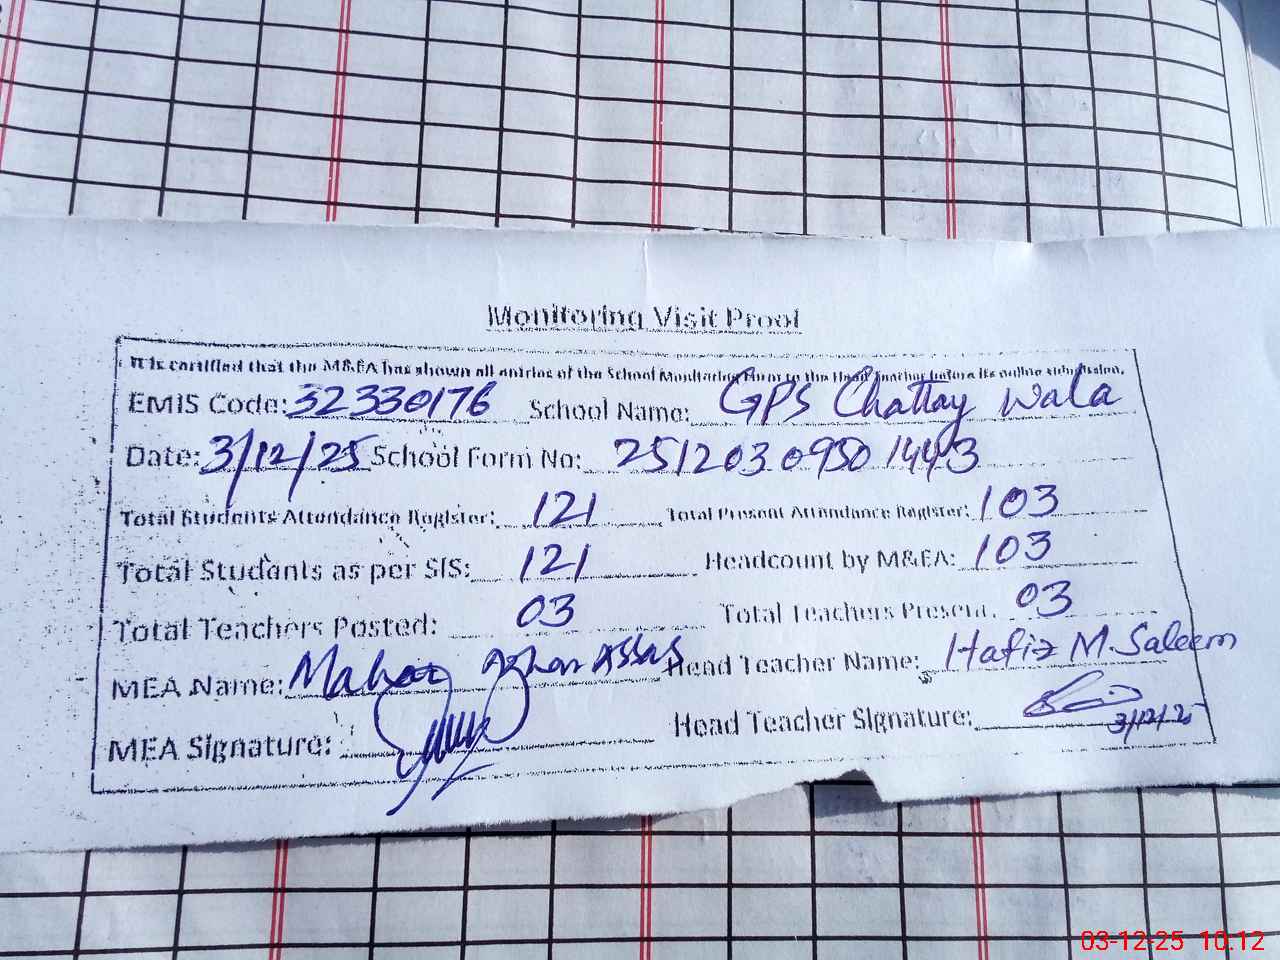 Monitoring Visit Proof
It is certified that the M&EA has shown all entries of the School Monitoring Form to the Head Teacher before its online submission.
EMIS Code: 32330176 School Name: GPS Chattay Wala
Date: 3/12/25 School Form No: 2512030950 1443
Total Students Attendance Register: 121 Total Present Attendance Register: 103
Total Students as per SIS: 121 Headcount by M&EA: 103
Total Teachers Posted: 03 Total Teachers Present: 03
MEA Name: Azhar Abbas Head Teacher Name: Hafiz M. Saleem
MEA Signature: Head Teacher Signature:
3/12/25
03-12-25 10:12